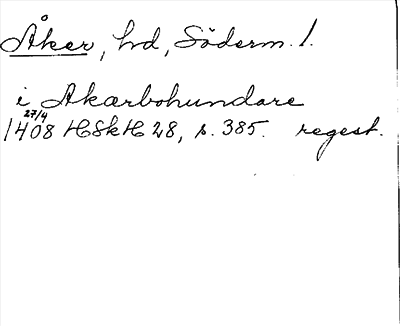 Åker, hd, Söderm. l.
i Akarbohundare
27/4
1408 HSkH 28, s. 385. regest.